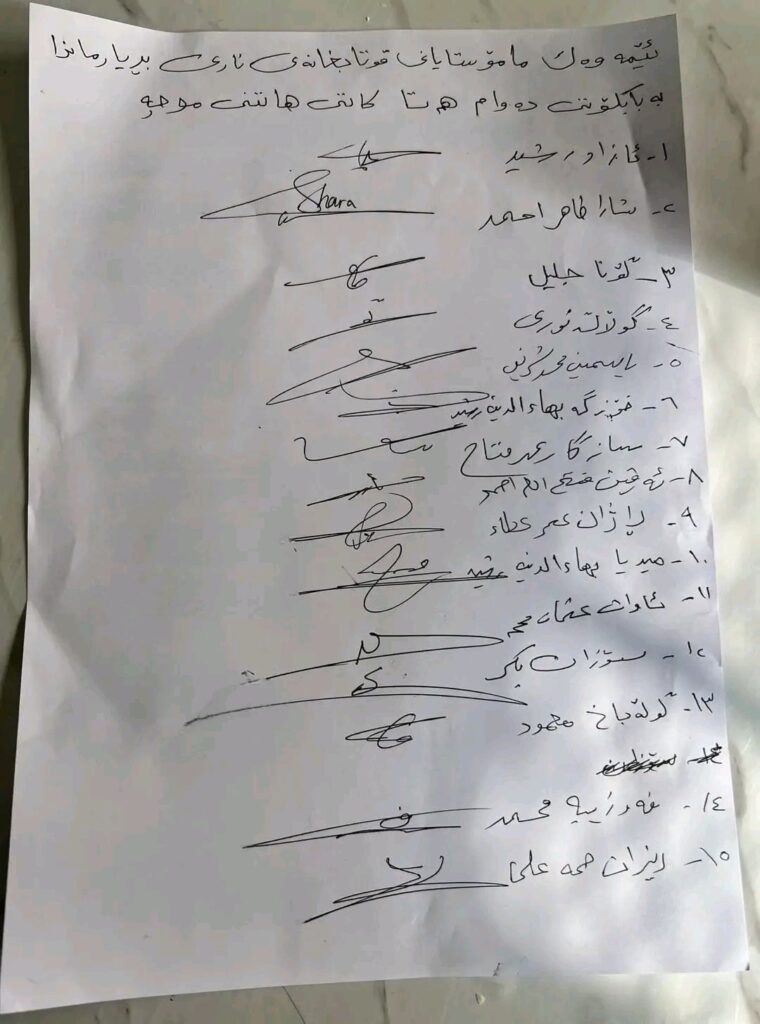 ئێمە وەك مامۆستایانی قوتابخانەی ناری بڕیارماندا
بە بایکۆتی دەوام هەتا کاتی هاتنی موچە
١- ئازاد رشید
٢- شارا طاهر احمد
Shara
٣- گۆنا جلیل
٤- گوڵاڵە نوری
٥- یاسمین محمد شریف
٦- خۆزگە بهاءالدین رشید
٧- سازگار عمر فتاح
٨- ئەڤین فتح الله احمد
٩- لاژان عمر عطاء
١٠- میدیا بهاءالدین رشید
١١- ئاوات عثمان محمد
١٢- سۆزان بکر
١٣- گوڵە باخ محمود
١٤- فەوزییە محمد
١٥- ڕێزان حمە علی